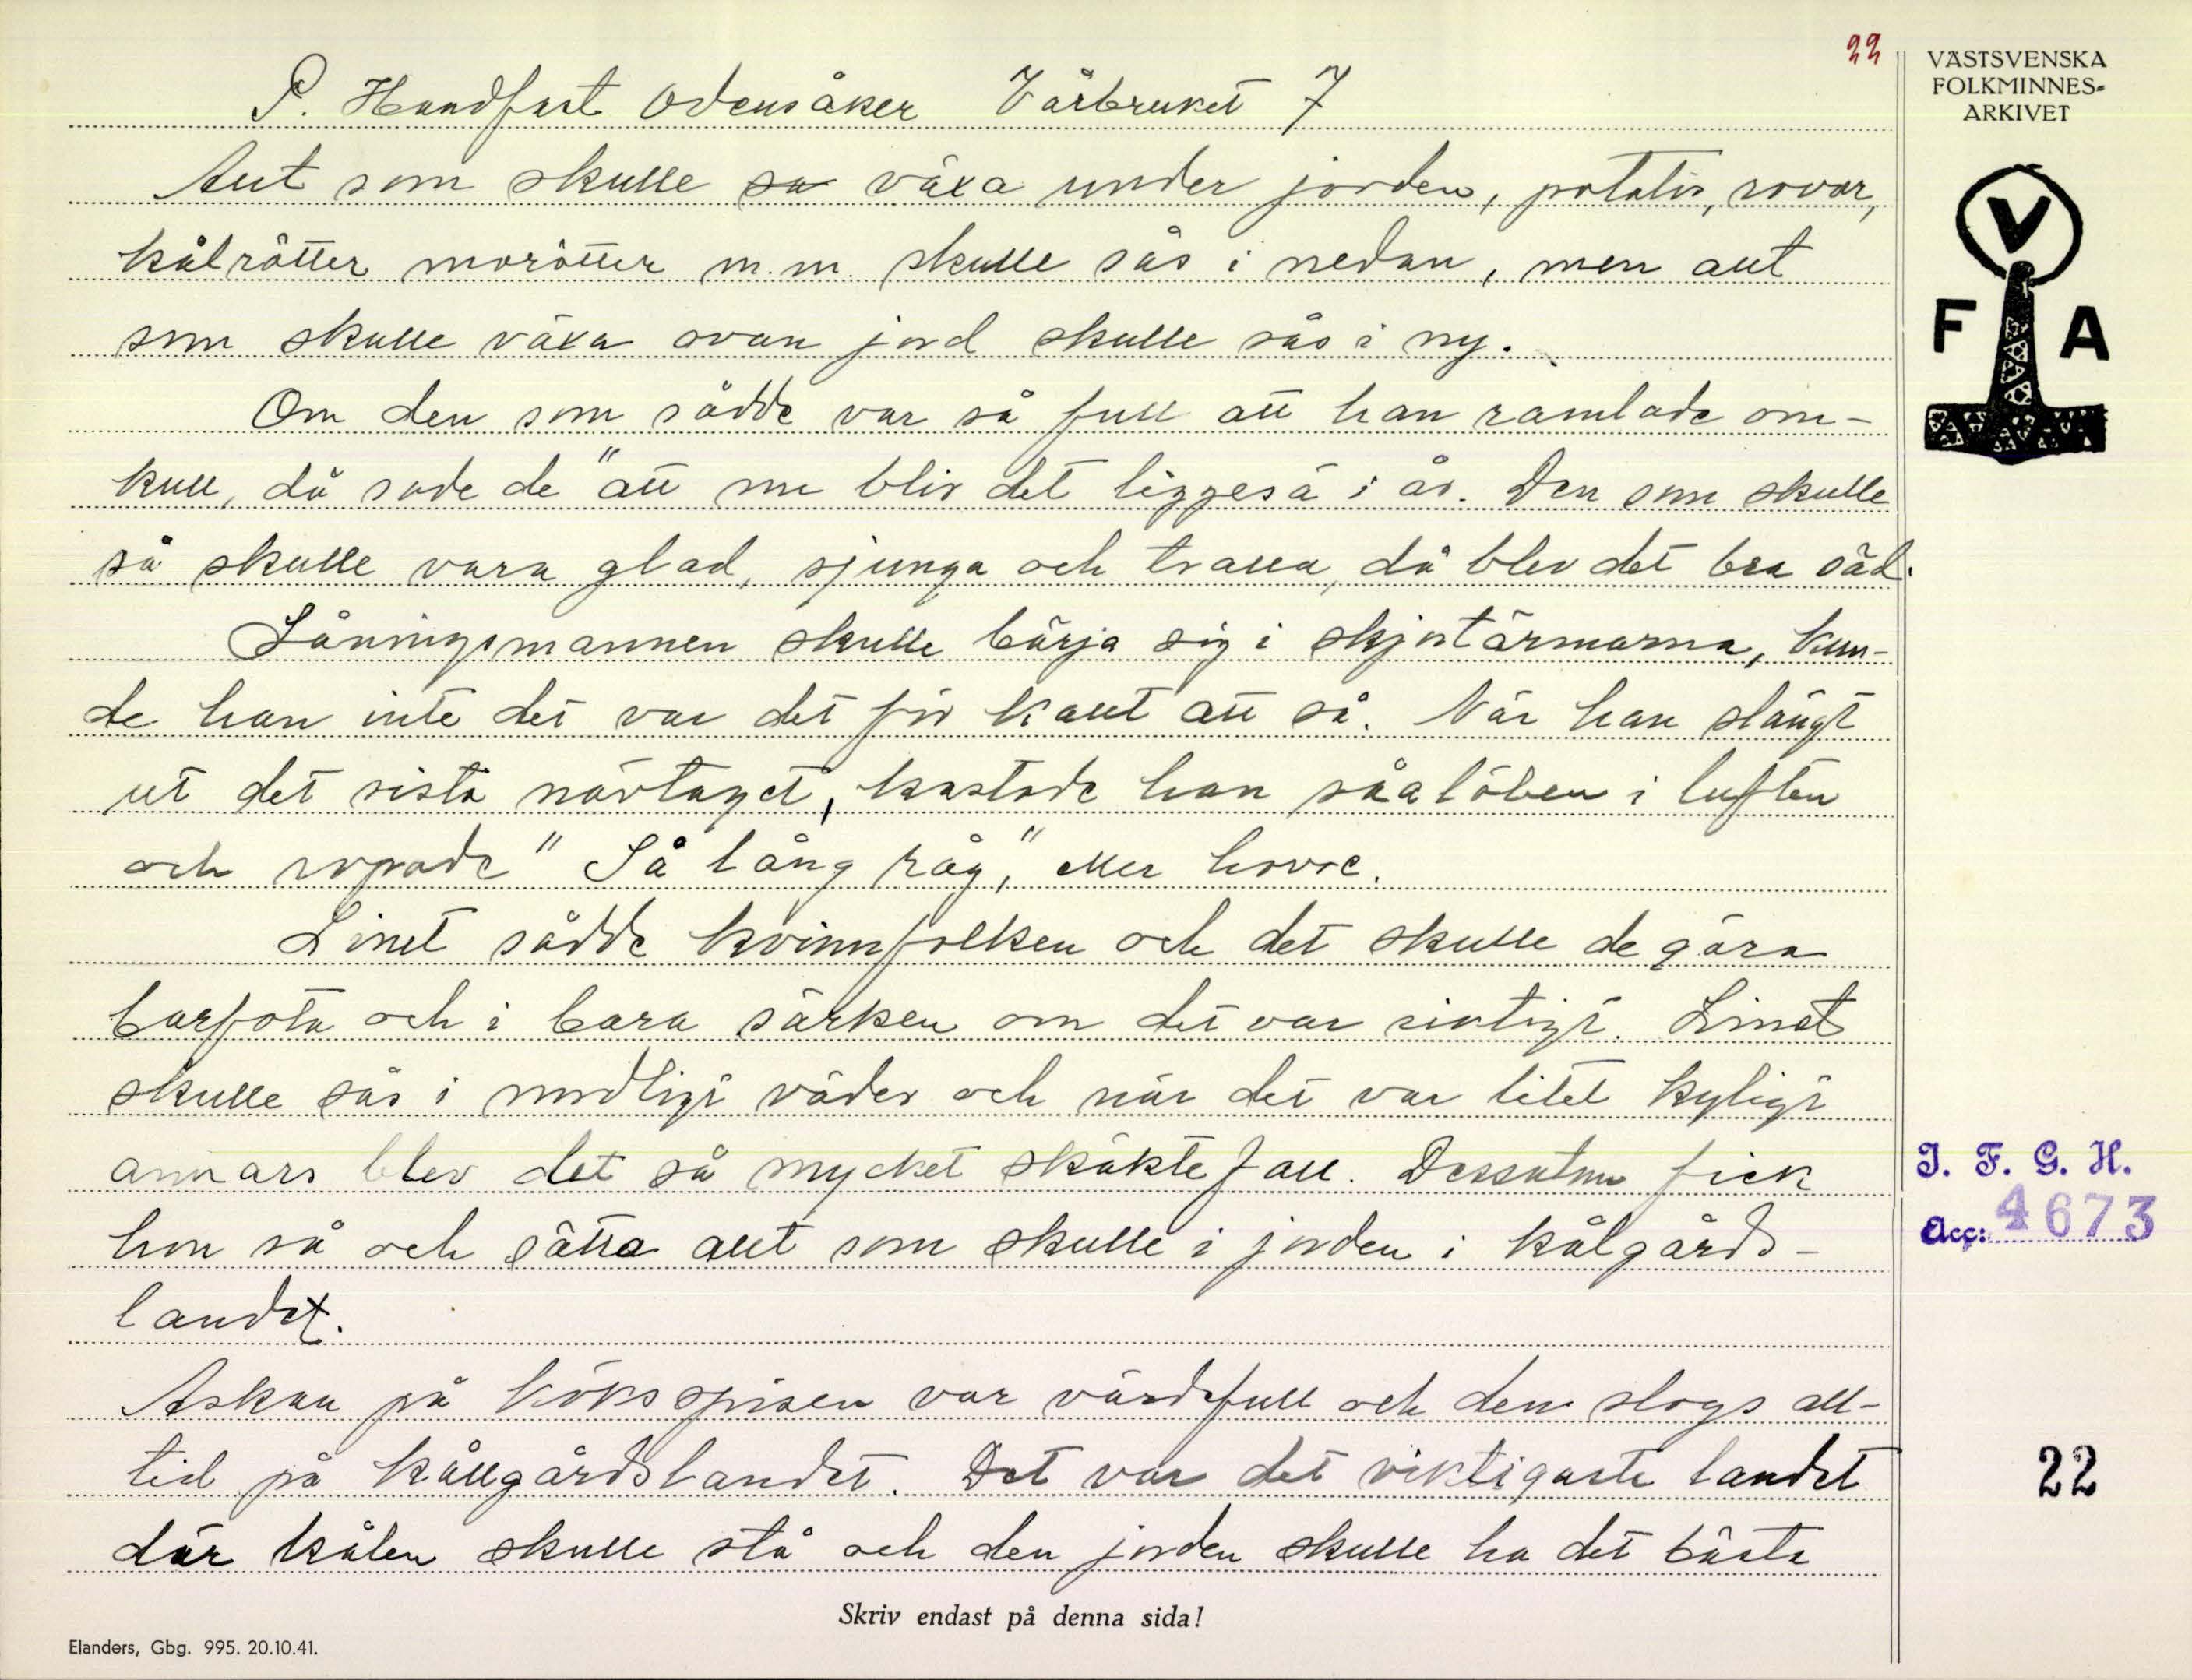 22
P. Handfast Odensåker Vårbruket 7
Allt som skulle sa växa under jorden, potatis, rovor,
kålrötter morötter m.m. skulle sås i nedan, men allt
som skulle växa ovan jord skulle sås i ny.
Om den som sådde var så full att han ramlade om-
kull, då sade de "att nu blir det liggesä i år. Den som skulle
så skulle vara glad, sjunga och tralla, då blev det bra säd.
Såningsmannen skulle bärja sig i skjortärmarna, kun-
de han inte det var det för kallt att så. När han slängt
ut det sista nävtaget, kastade han såalöben i luften
och ropade "Så lång råg," eller havre.
Linet sådde kvinnfolken och det skulle de göra
barfota och i bara särken om det var riktigt. Linet
skulle sås i nordligt väder och när det var litet kyligt
annars blev det så mycket skäktefall. Dessutom fick
hon så och sätta allt som skulle i jorden i kålgårds-
landet.
Askan på köksspisen var värdefull och den slogs all-
tid på kållgårdslandet. Det var det viktigaste landet
där kålen skulle stå och den jorden skulle ha det bästa
Skriv endast på denna sida!
Elanders, Gbg. 995. 20.10.41.
VÄSTSVENSKA
FOLKMINNES-
ARKIVET
V
F A
I. F. G. H.
Acc: 4673
22